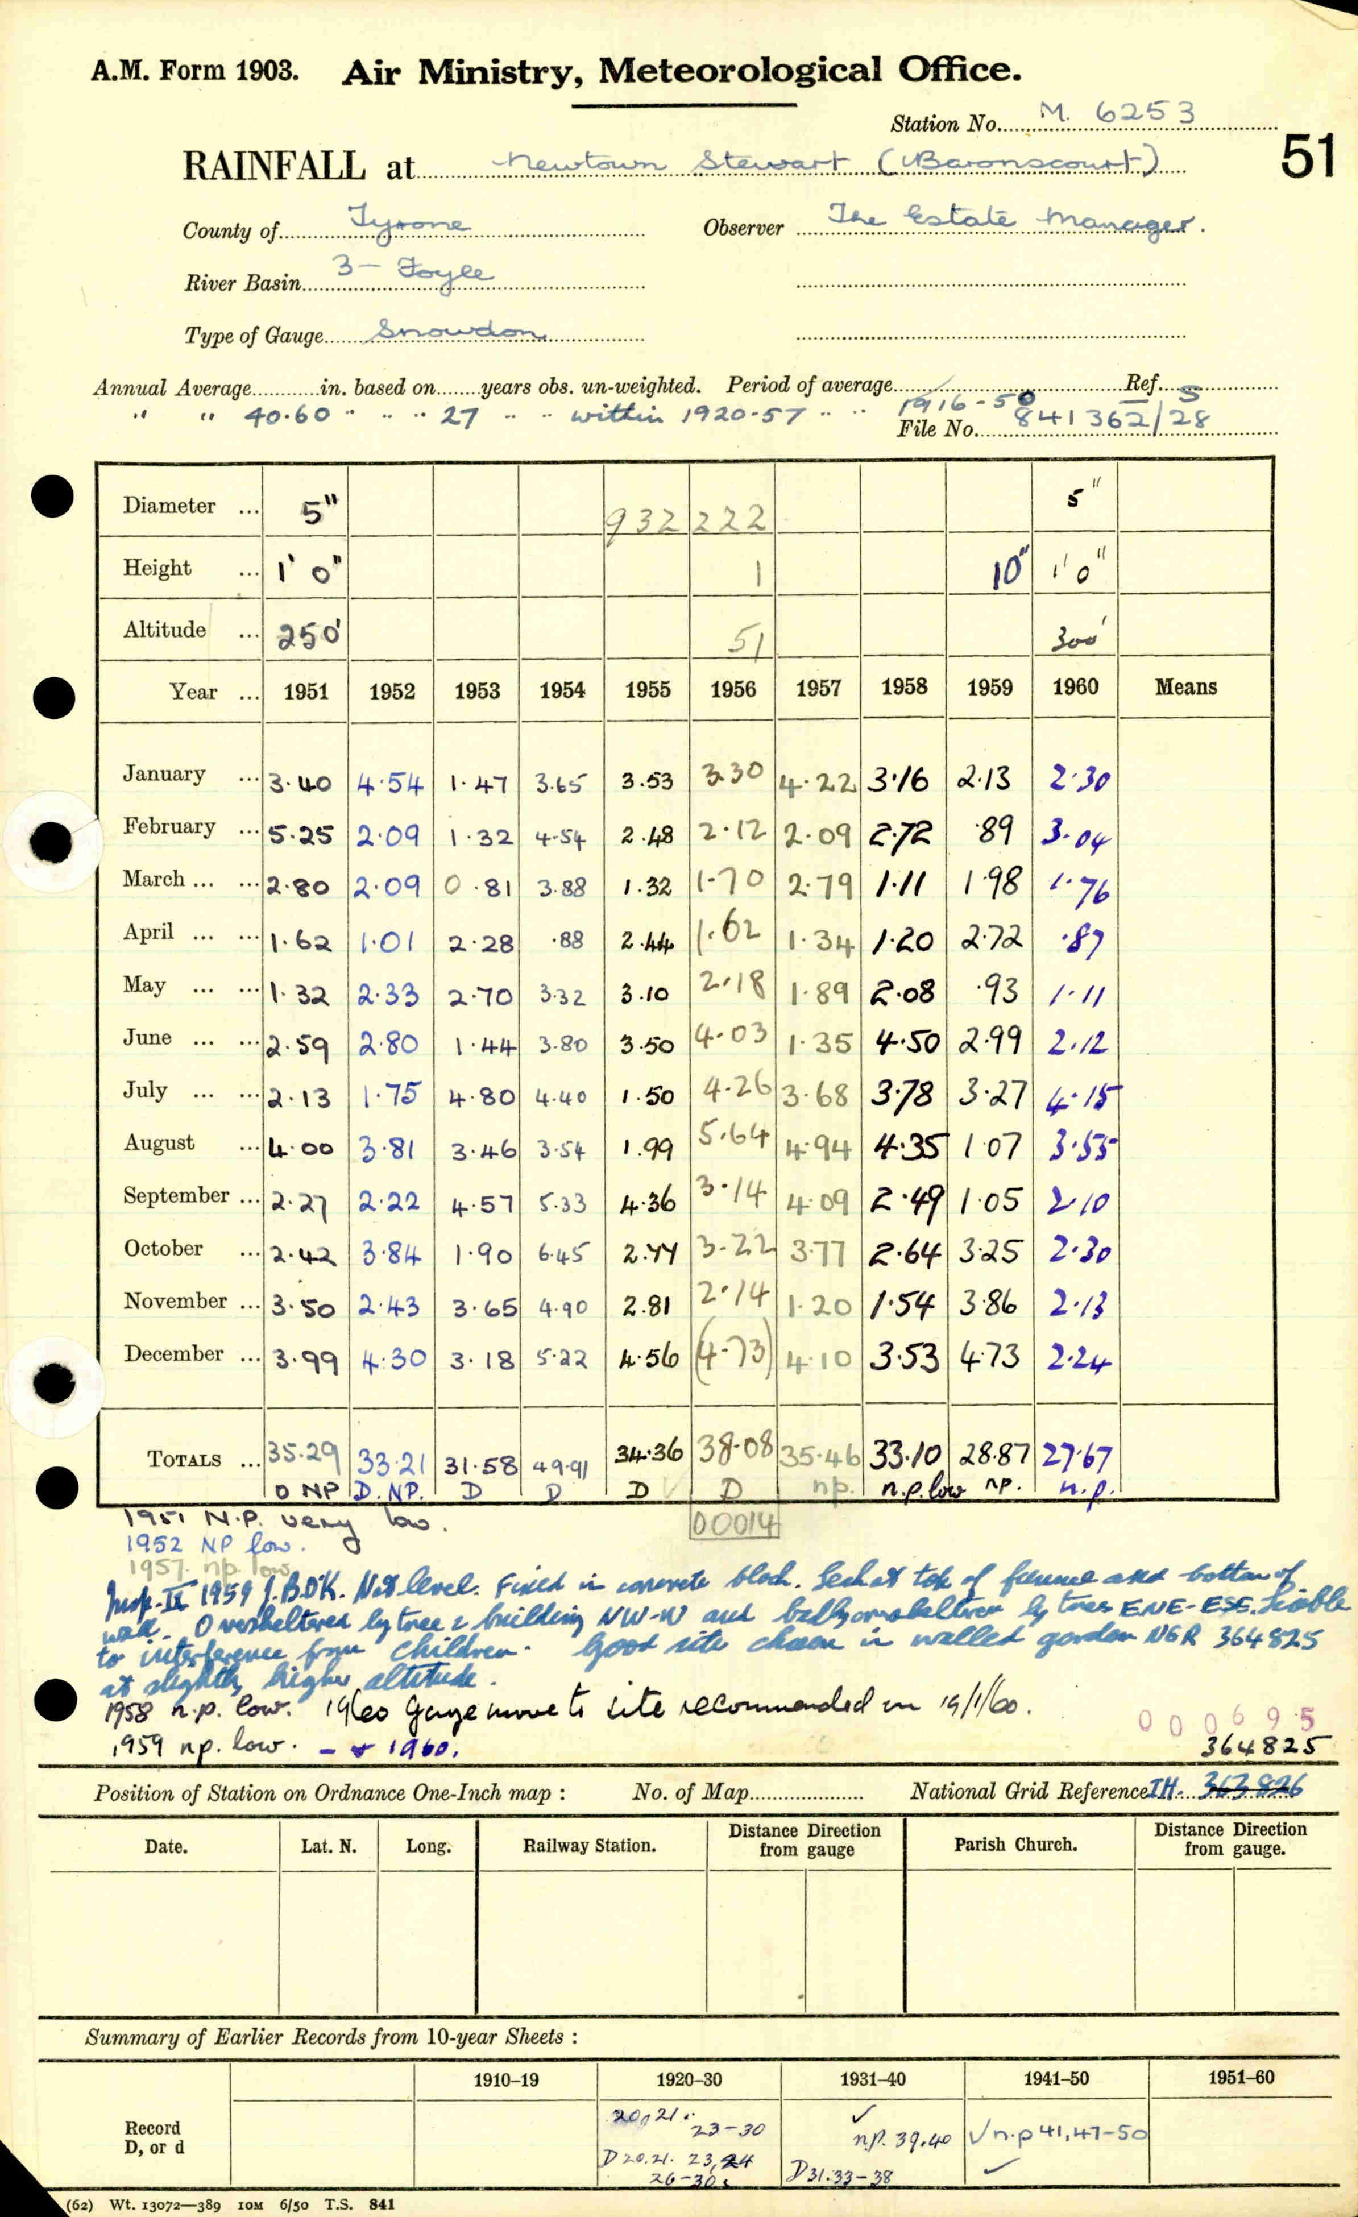 A.M. Form 1903. Air Ministry, Meteorological Office.
Station No. M. 6253
51
RAINFALL at Newtown Stewart (Baronscourt)
County of Tyrone Observer The Estate Manager.
River Basin 3 - Foyle
Type of Gauge Snowdon
Annual Average in. based on years obs. un-weighted. Period of average 1916-50 Ref. S
" " 40.60 " " " 27 " " within 1920-57 " " File No. 841362/28
Diameter ... 5" 932 222 5"
Height ... 1' 0" 1 10" 1' 0"
Altitude ... 250' 51 300'
Year ... 1951 1952 1953 1954 1955 1956 1957 1958 1959 1960 Means
January ... 3.40 4.54 1.47 3.65 3.53 3.30 4.22 3.16 2.13 2.30
February ... 5.25 2.09 1.32 4.54 2.48 2.12 2.09 2.72 .89 3.04
March ... ... 2.80 2.09 0.81 3.88 1.32 1.70 2.79 1.11 1.98 1.76
April ... ... 1.62 1.01 2.28 .88 2.44 1.62 1.34 1.20 2.72 .87
May ... ... 1.32 2.33 2.70 3.32 3.10 2.18 1.89 2.08 .93 1.11
June ... ... 2.59 2.80 1.44 3.80 3.50 4.03 1.35 4.50 2.99 2.12
July ... ... 2.13 1.75 4.80 4.40 1.50 4.26 3.68 3.78 3.27 4.15
August ... 4.00 3.81 3.46 3.54 1.99 5.64 4.94 4.35 1.07 3.55
September ... 2.27 2.22 4.57 5.33 4.36 3.14 4.09 2.49 1.05 2.10
October ... 2.42 3.84 1.90 6.45 2.77 3.22 3.77 2.64 3.25 2.30
November ... 3.50 2.43 3.65 4.90 2.81 2.14 1.20 1.54 3.86 2.13
December ... 3.99 4.30 3.18 5.22 4.56 (4.73) 4.10 3.53 4.73 2.24
TOTALS ... 35.29 33.21 31.58 49.91 34.36 38.08 35.46 33.10 28.87 27.67
D NP D. NP. D D D D np. n.p. low np. n.p.
1951 N.P. very low. 00014
1952 NP low.
1957. np low
Insp. IX 1959 J.B.O'K. Not level. Fixed in concrete block. at top of and bottom of
wall. Oversheltered by tree & building NW-W and badly by trees ENE-ESE. Liable
to interference from children. Good site chosen in walled garden NGR 364825
at slightly higher altitude.
1958 n.p. low. 1960 Gauge move to site recommended on 19/1/60.
000695
1959 np. low. - & 1960. 364825
Position of Station on Ordnance One-Inch map : No. of Map National Grid Reference IH. 363826
Date. Lat. N. Long. Railway Station. Distance Direction from gauge Parish Church. Distance Direction from gauge.
Summary of Earlier Records from 10-year Sheets :
1910–19 1920–30 1931–40 1941–50 1951–60
Record D, or d
20, 21. 23-30 ✓ np. 39.40 ✓ n.p 41, 47-50
D 20.21. 23,24 26-30. D 31.33-38 ✓
(62) Wt. 13072—389 10M 6/50 T.S. 841